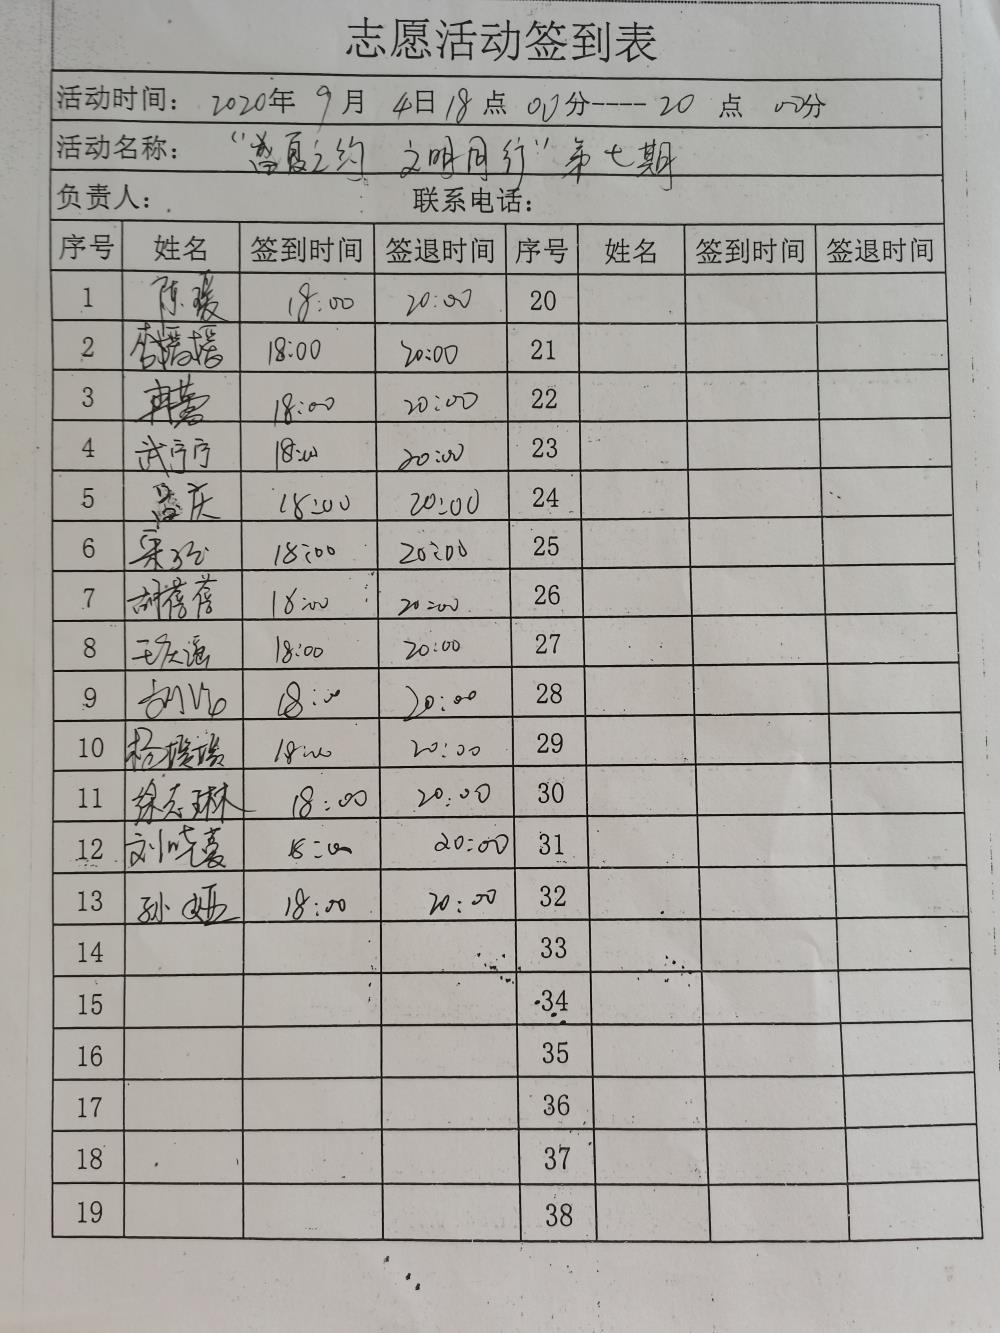 志愿活动签到表
活动时间: 2020年 9月 4日18点 00分----20 点 00分
活动名称: “盛夏之约 文明同行”第七期
负责人: 联系电话:
序号 姓名 签到时间 签退时间 序号 姓名 签到时间 签退时间
1 陈瑗 18:00 20:00 20
2 18:00 20:00 21
3 冉 18:00 20:00 22
4 武宁宁 18:00 20:00 23
5 庆 18:00 20:00 24
6 18:00 20:00 25
7 胡蓓蓓 18:00 20:00 26
8 王庆 18:00 20:00 27
9 18:00 20:00 28
10 杨媛媛 18:00 20:00 29
11 徐志琳 18:00 20:00 30
12 刘晓蔓 18:00 20:00 31
13 孙娅 18:00 20:00 32
14 33
15 34
16 35
17 36
18 37
19 38